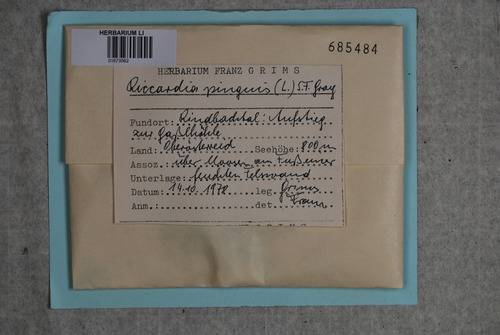 HERBARIUM LI
685484
HERBARIUM FRANZ GRIMS
Riccardia pinguis (L.) S.F. Gray
Fundort: Rindbachtal: Aufstieg
zur Gaßlhöhle
Land: Oberösterreich Seehöhe: 800 m
Assoz. über Moosen am Fuße einer
Unterlage: feuchten Felswand
Datum: 14.10.1978 leg. Grims
Anm.: det. Franz
GRIMS